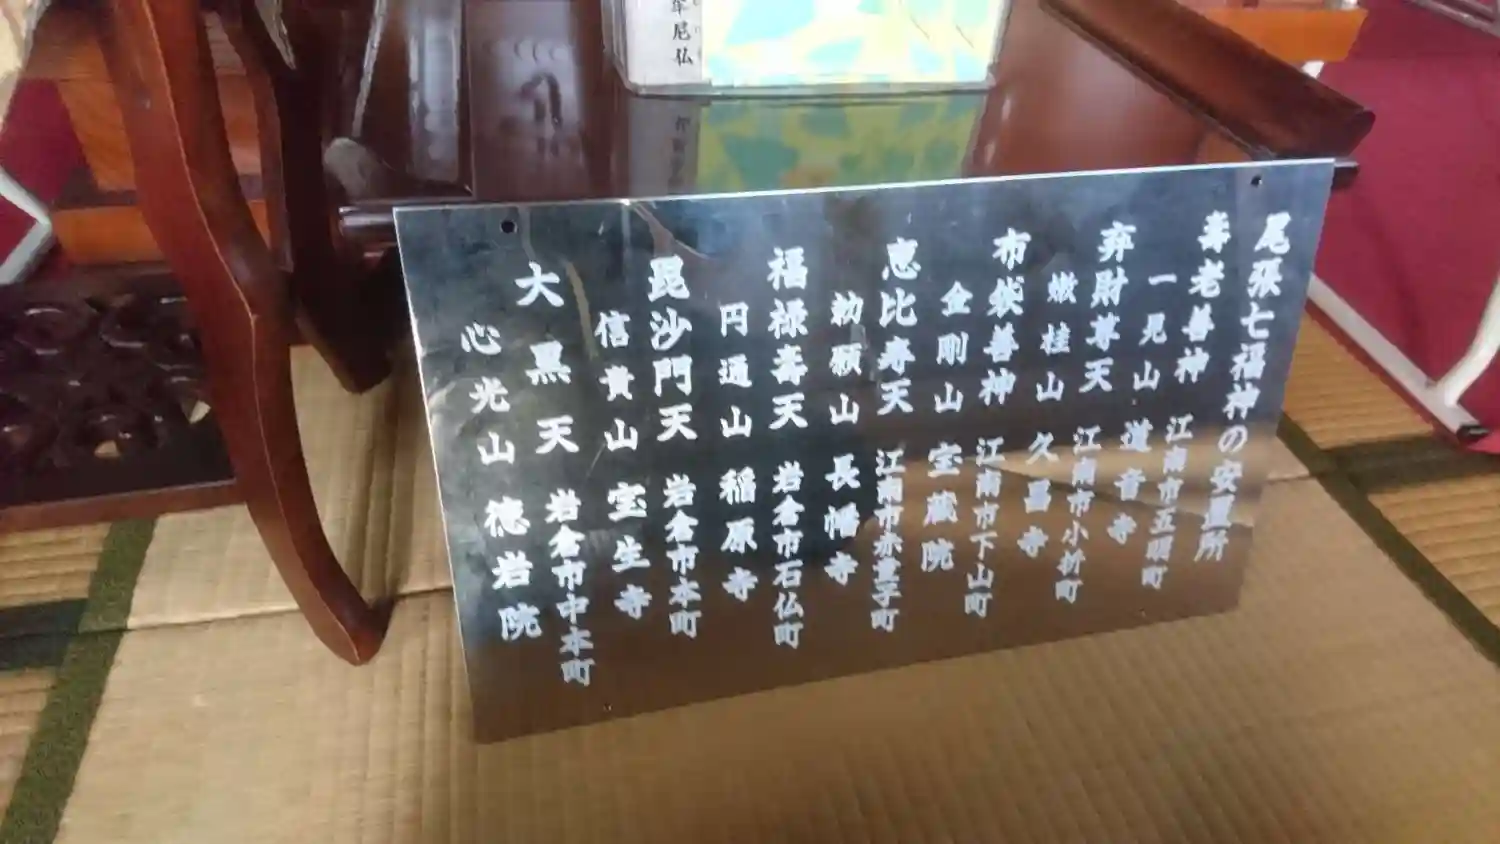 尾張七福神の安置所
壽老善神 江南市五明町
一見山 道音寺
弁財尊天 江南市小折町
嫩桂山 久昌寺
布袋善神 江南市下山町
金剛山 宝蔵院
恵比寿天 江南市赤童子町
勅願山 長幡寺
福禄壽天 岩倉市石仏町
円通山 稲原寺
毘沙門天 岩倉市本町
信貴山 宝生寺
大黒天 岩倉市中本町
心光山 徳岩院
牟尼仏